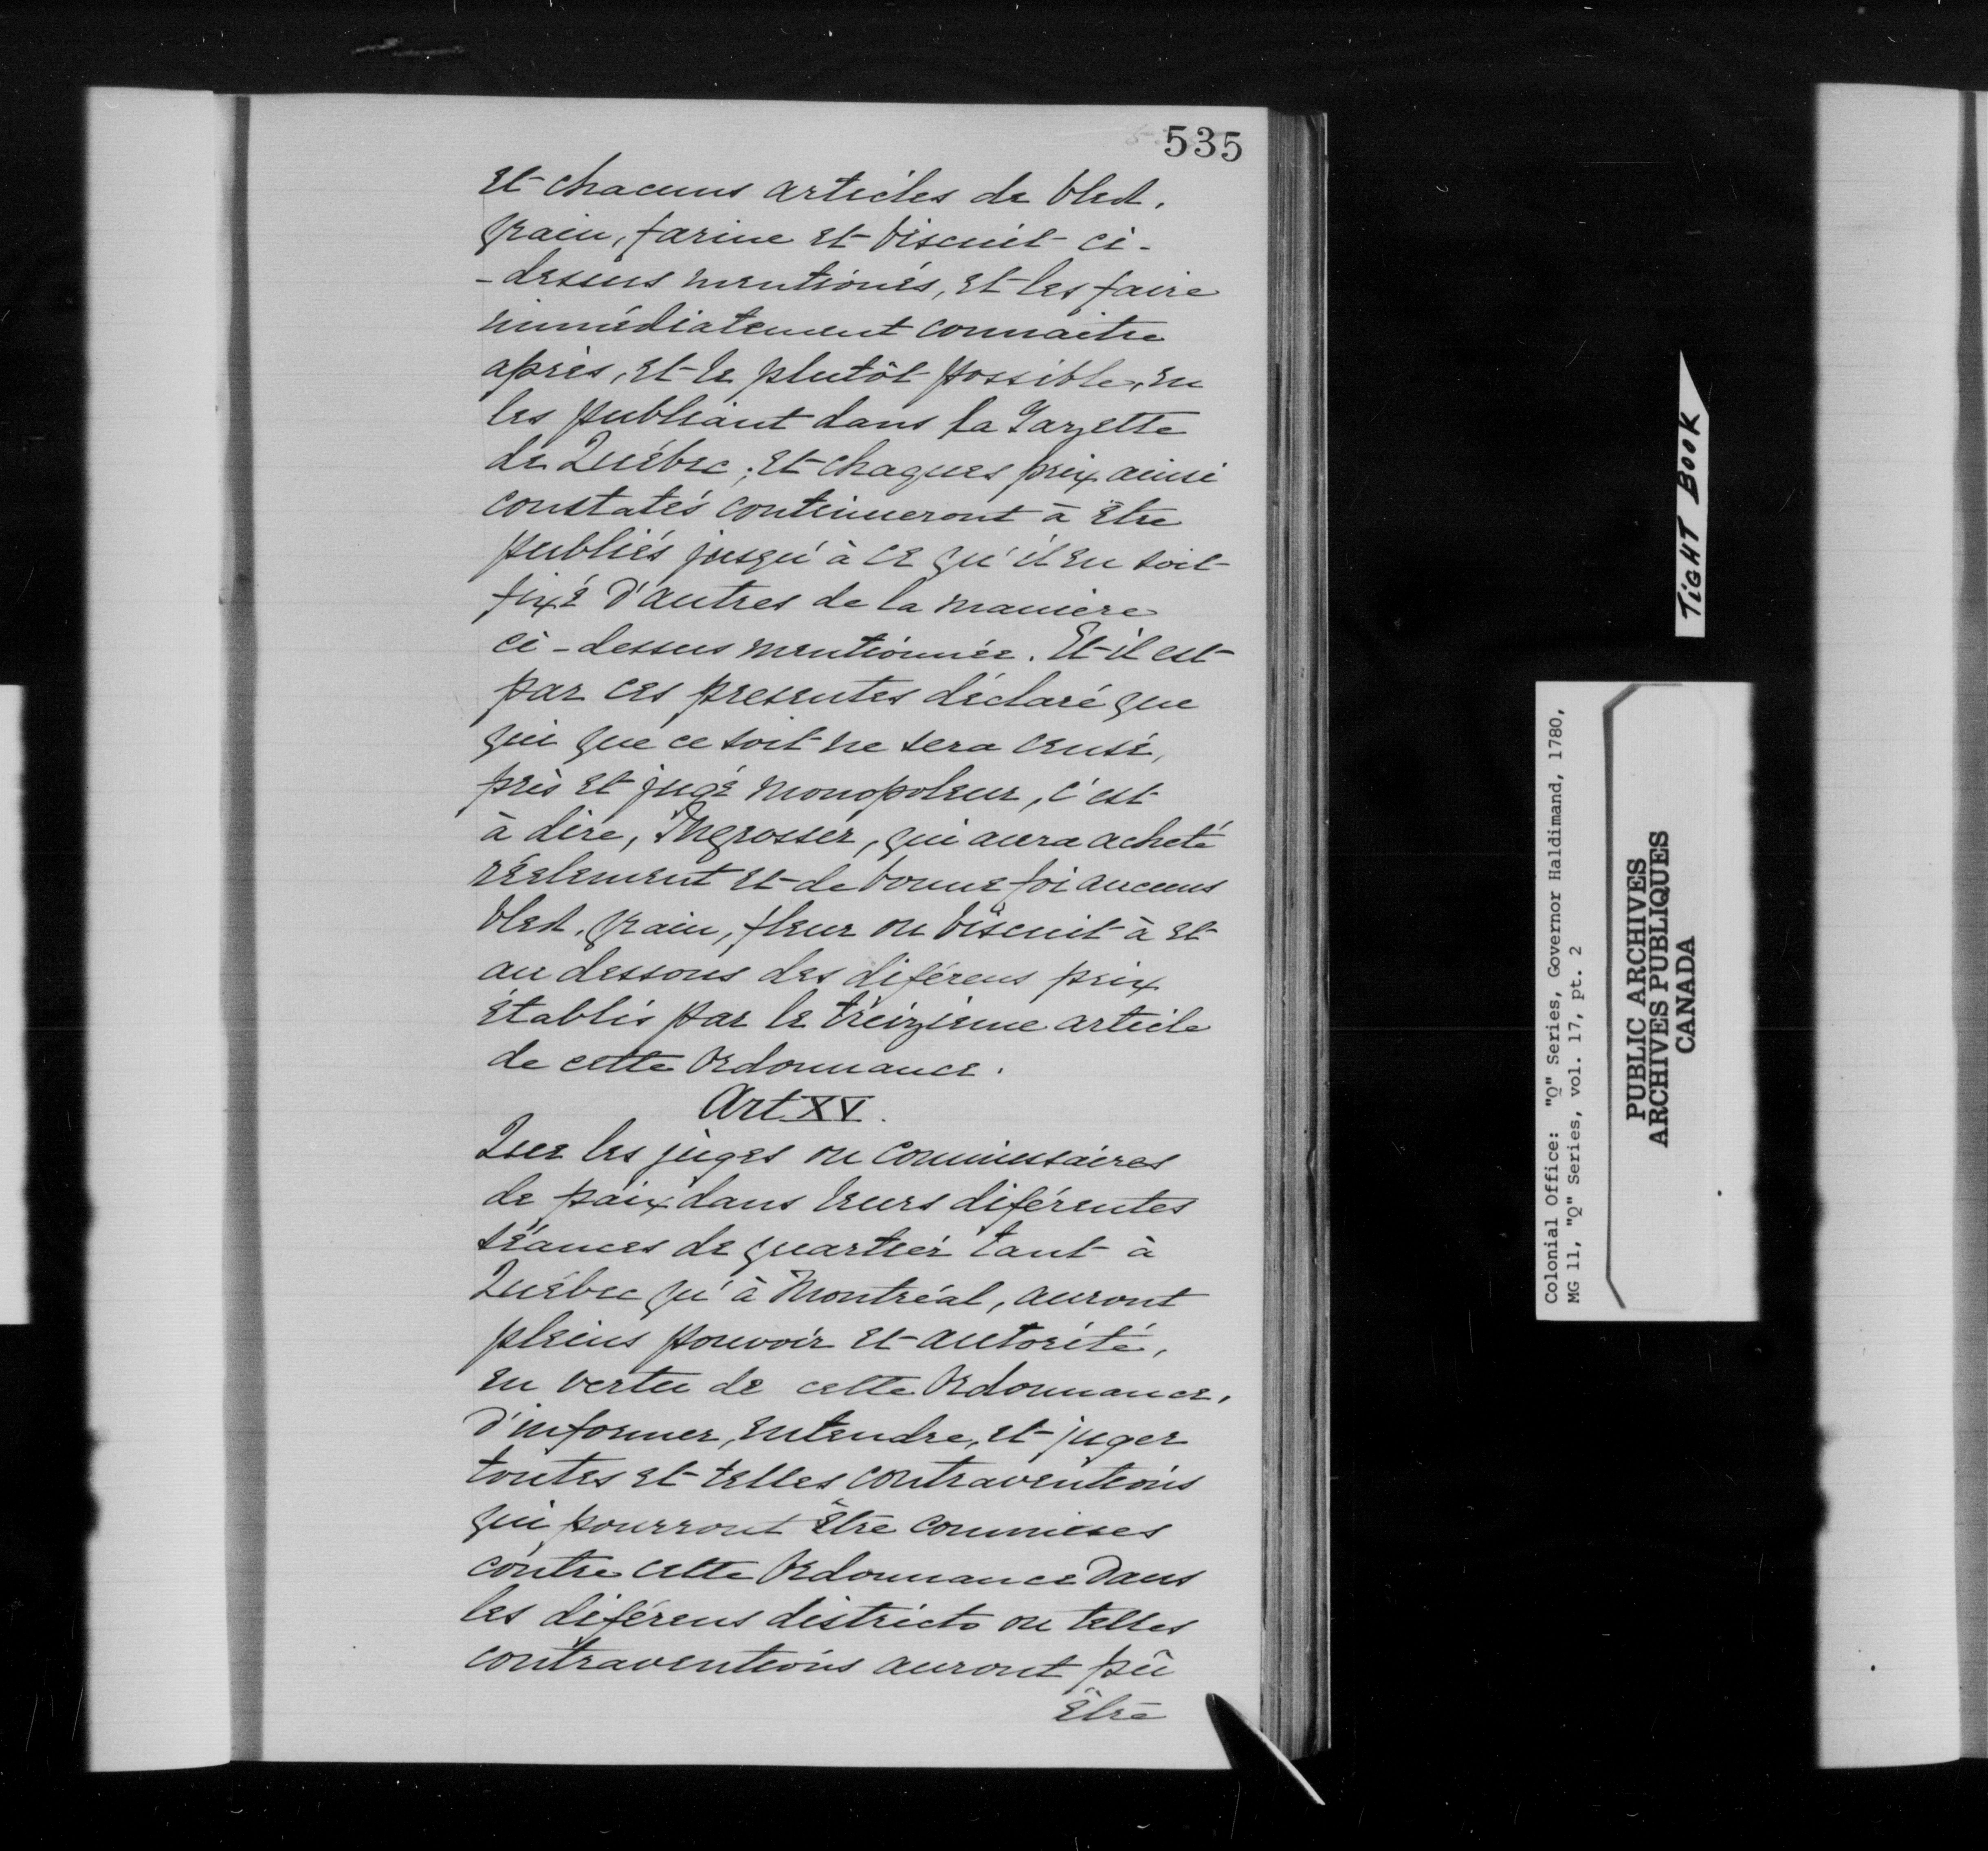 535
et chacuns articles de bled,
grain, farine et biscuit ci-
-dessus mentionés, et les faire
immédiatement connaitre
après, et le plutôt possible, en
les publiant dans la Gazette
de Québec; et chaques prix ainsi
constatés continueront à être
publiés jusqu'à ce qu'il en soit
fixé d'autres de la maniere
ci-dessus mentionnée. Et il est
par ces presentes déclaré que
qui que ce soit ne sera censé,
pris et jugé monopoleur, c'est
à dire, Ingrosser, qui aura acheté
réelement et de bonne foi aucuns
bled, grain, fleur ou biscuit à et
au dessous des diférens prix
établis par le treizieme article
de cette Ordonnance.
Art XV.
Que les juges ou commissaires
de paix dans leurs diférentes
séances de quartier tant à
Québec qu'à Montréal, auront
pleins pouvoir et autorité,
en vertu de cette Ordonnance,
d'informer, entendre, et juger
toutes et telles contraventions
qui pourront être commises
contre cette Ordonnance dans
les diférens districts ou telles
contraventions auront pû
être
TIGHT BOOK
Colonial Office: "Q" Series, Governor Haldimand, 1780,
MG 11, "Q" Series, vol. 17, pt. 2
PUBLIC ARCHIVES
ARCHIVES PUBLIQUES
CANADA